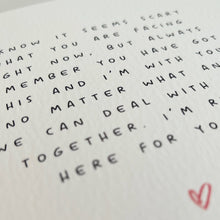 KNOW IT SEEMS SCARY
WHAT YOU ARE FACING
GHT NOW, BUT ALWAYS
MEMBER YOU HAVE GOT
HIS AND I'M WITH YOU
NO MATTER WHAT AN
WE CAN DEAL WITH
TOGETHER. I'M R
HERE FOR YO